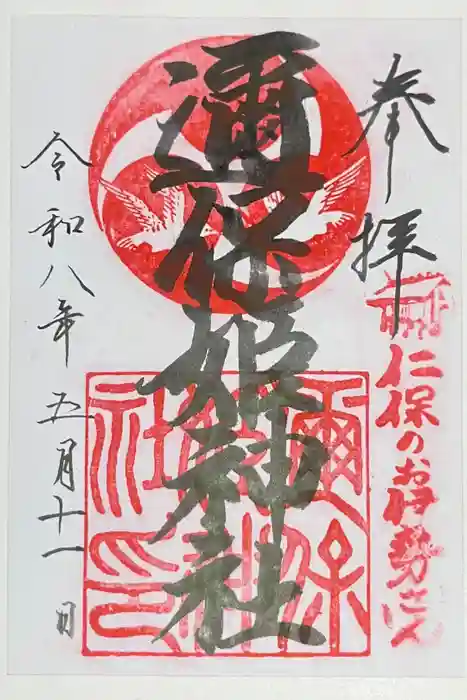 奉拝
仁保のお伊勢さん
邇保姫神社
爾保
社印
令和八年五月十一日